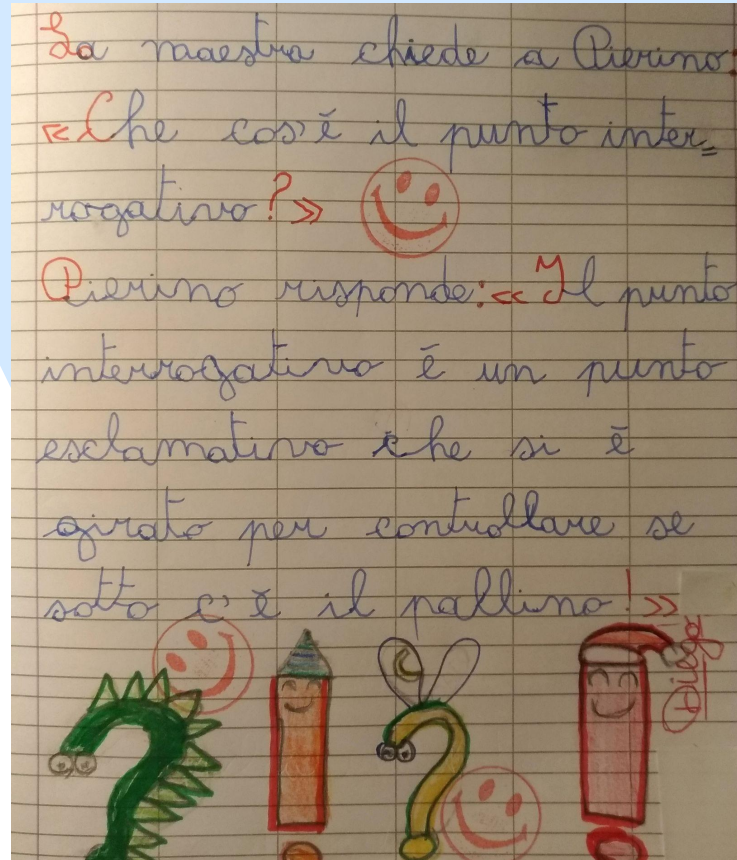 La maestra chiede a Pierino:
«Che cos'è il punto inter=
rogativo?»
Pierino risponde: «Il punto
interrogativo è un punto
esclamativo che si è
girato per controllare se
sotto c'è il pallino!»
Diego